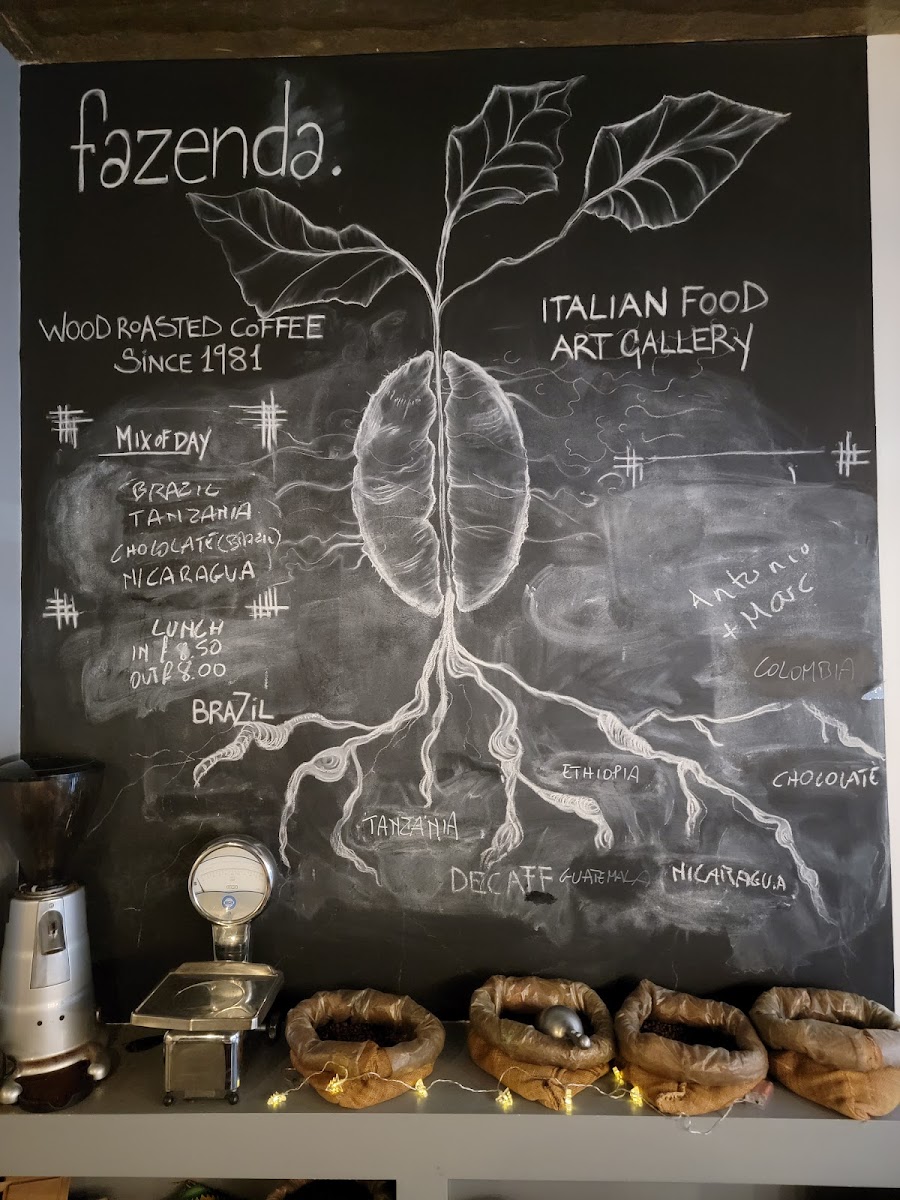 fazenda.
WOOD ROASTED COFFEE
SINCE 1981
ITALIAN FOOD
ART GALLERY
MIX OF DAY
BRAZIL
TANZANIA
CHOCOLATE (BRAZIL)
NICARAGUA
LUNCH
IN £ 8.50
OUT £ 8.00
Antonio
+ Marc
COLOMBIA
BRAZIL
ETHIOPIA
CHOCOLATE
TANZANIA
DECAFF
GUATEMALA
NICARAGUA